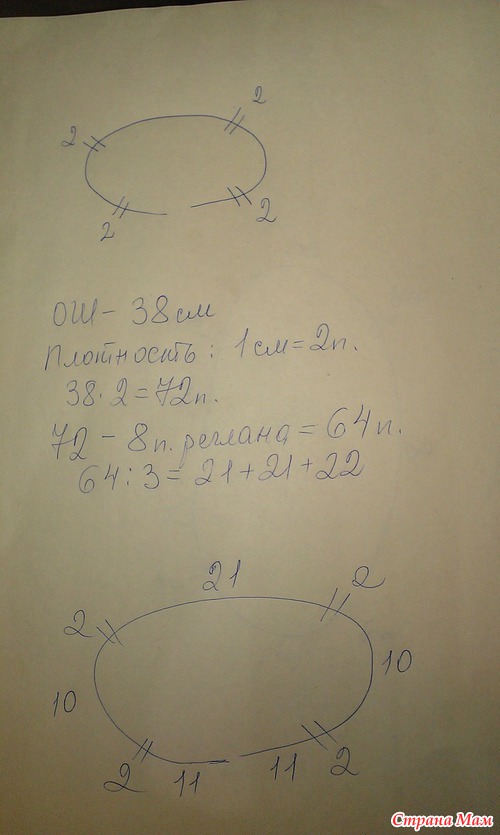 2
2
2
2
ОШ - 38 см
Плотность: 1 см = 2 п.
38 · 2 = 72 п.
72 - 8 п. реглана = 64 п.
64 : 3 = 21 + 21 + 22
21
2
2
10
10
2
11
11
2
Страна Мам